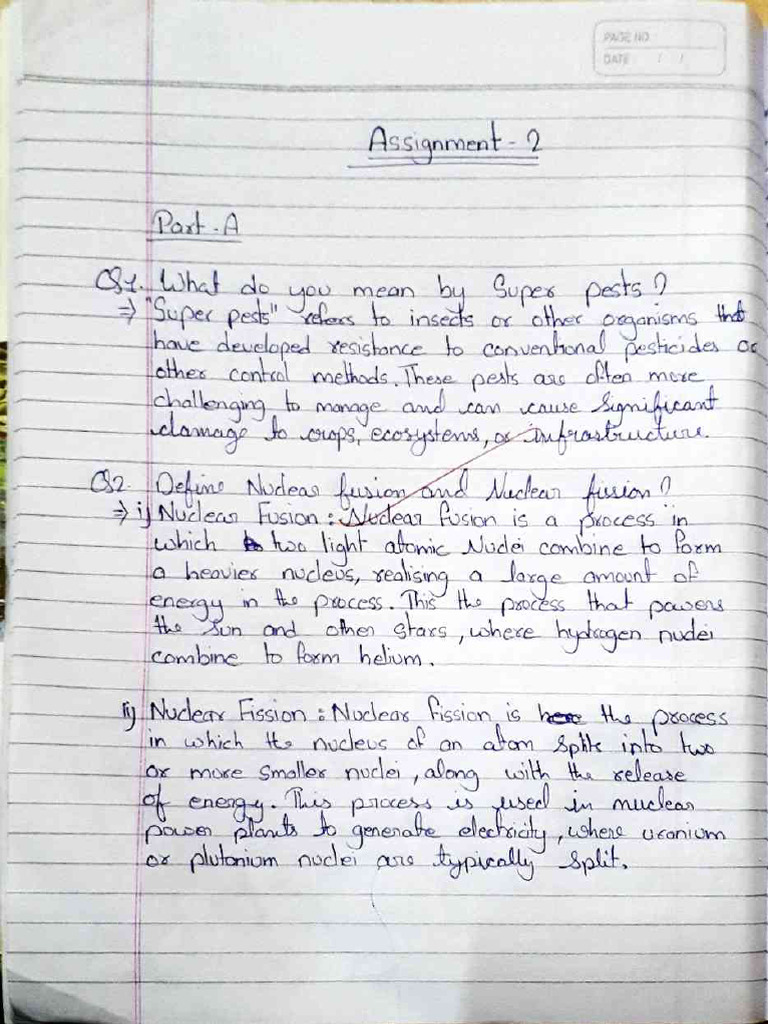 PAGE NO
DATE / /
Assignment - 2
Part - A
Q1. What do you mean by Super pests?
⇒ "Super pests" refers to insects or other organisms that
have developed resistance to conventional pesticides or
other control methods. These pests are often more
challenging to manage and can cause significant
damage to crops, ecosystems, or infrastructure.
Q2. Define Nuclear fusion and Nuclear fission?
⇒ i) Nuclear Fusion : Nuclear fusion is a process in
which two light atomic Nuclei combine to form
a heavier nucleus, realising a large amount of
energy in the process. This the process that powers
the Sun and other stars, where hydrogen nuclei
combine to form helium.
ii) Nuclear Fission : Nuclear fission is the process
in which the nucleus of an atom splits into two
or more smaller nuclei, along with the release
of energy. This process is used in nuclear
power plants to generate electricity, where uranium
or plutonium nuclei are typically split.